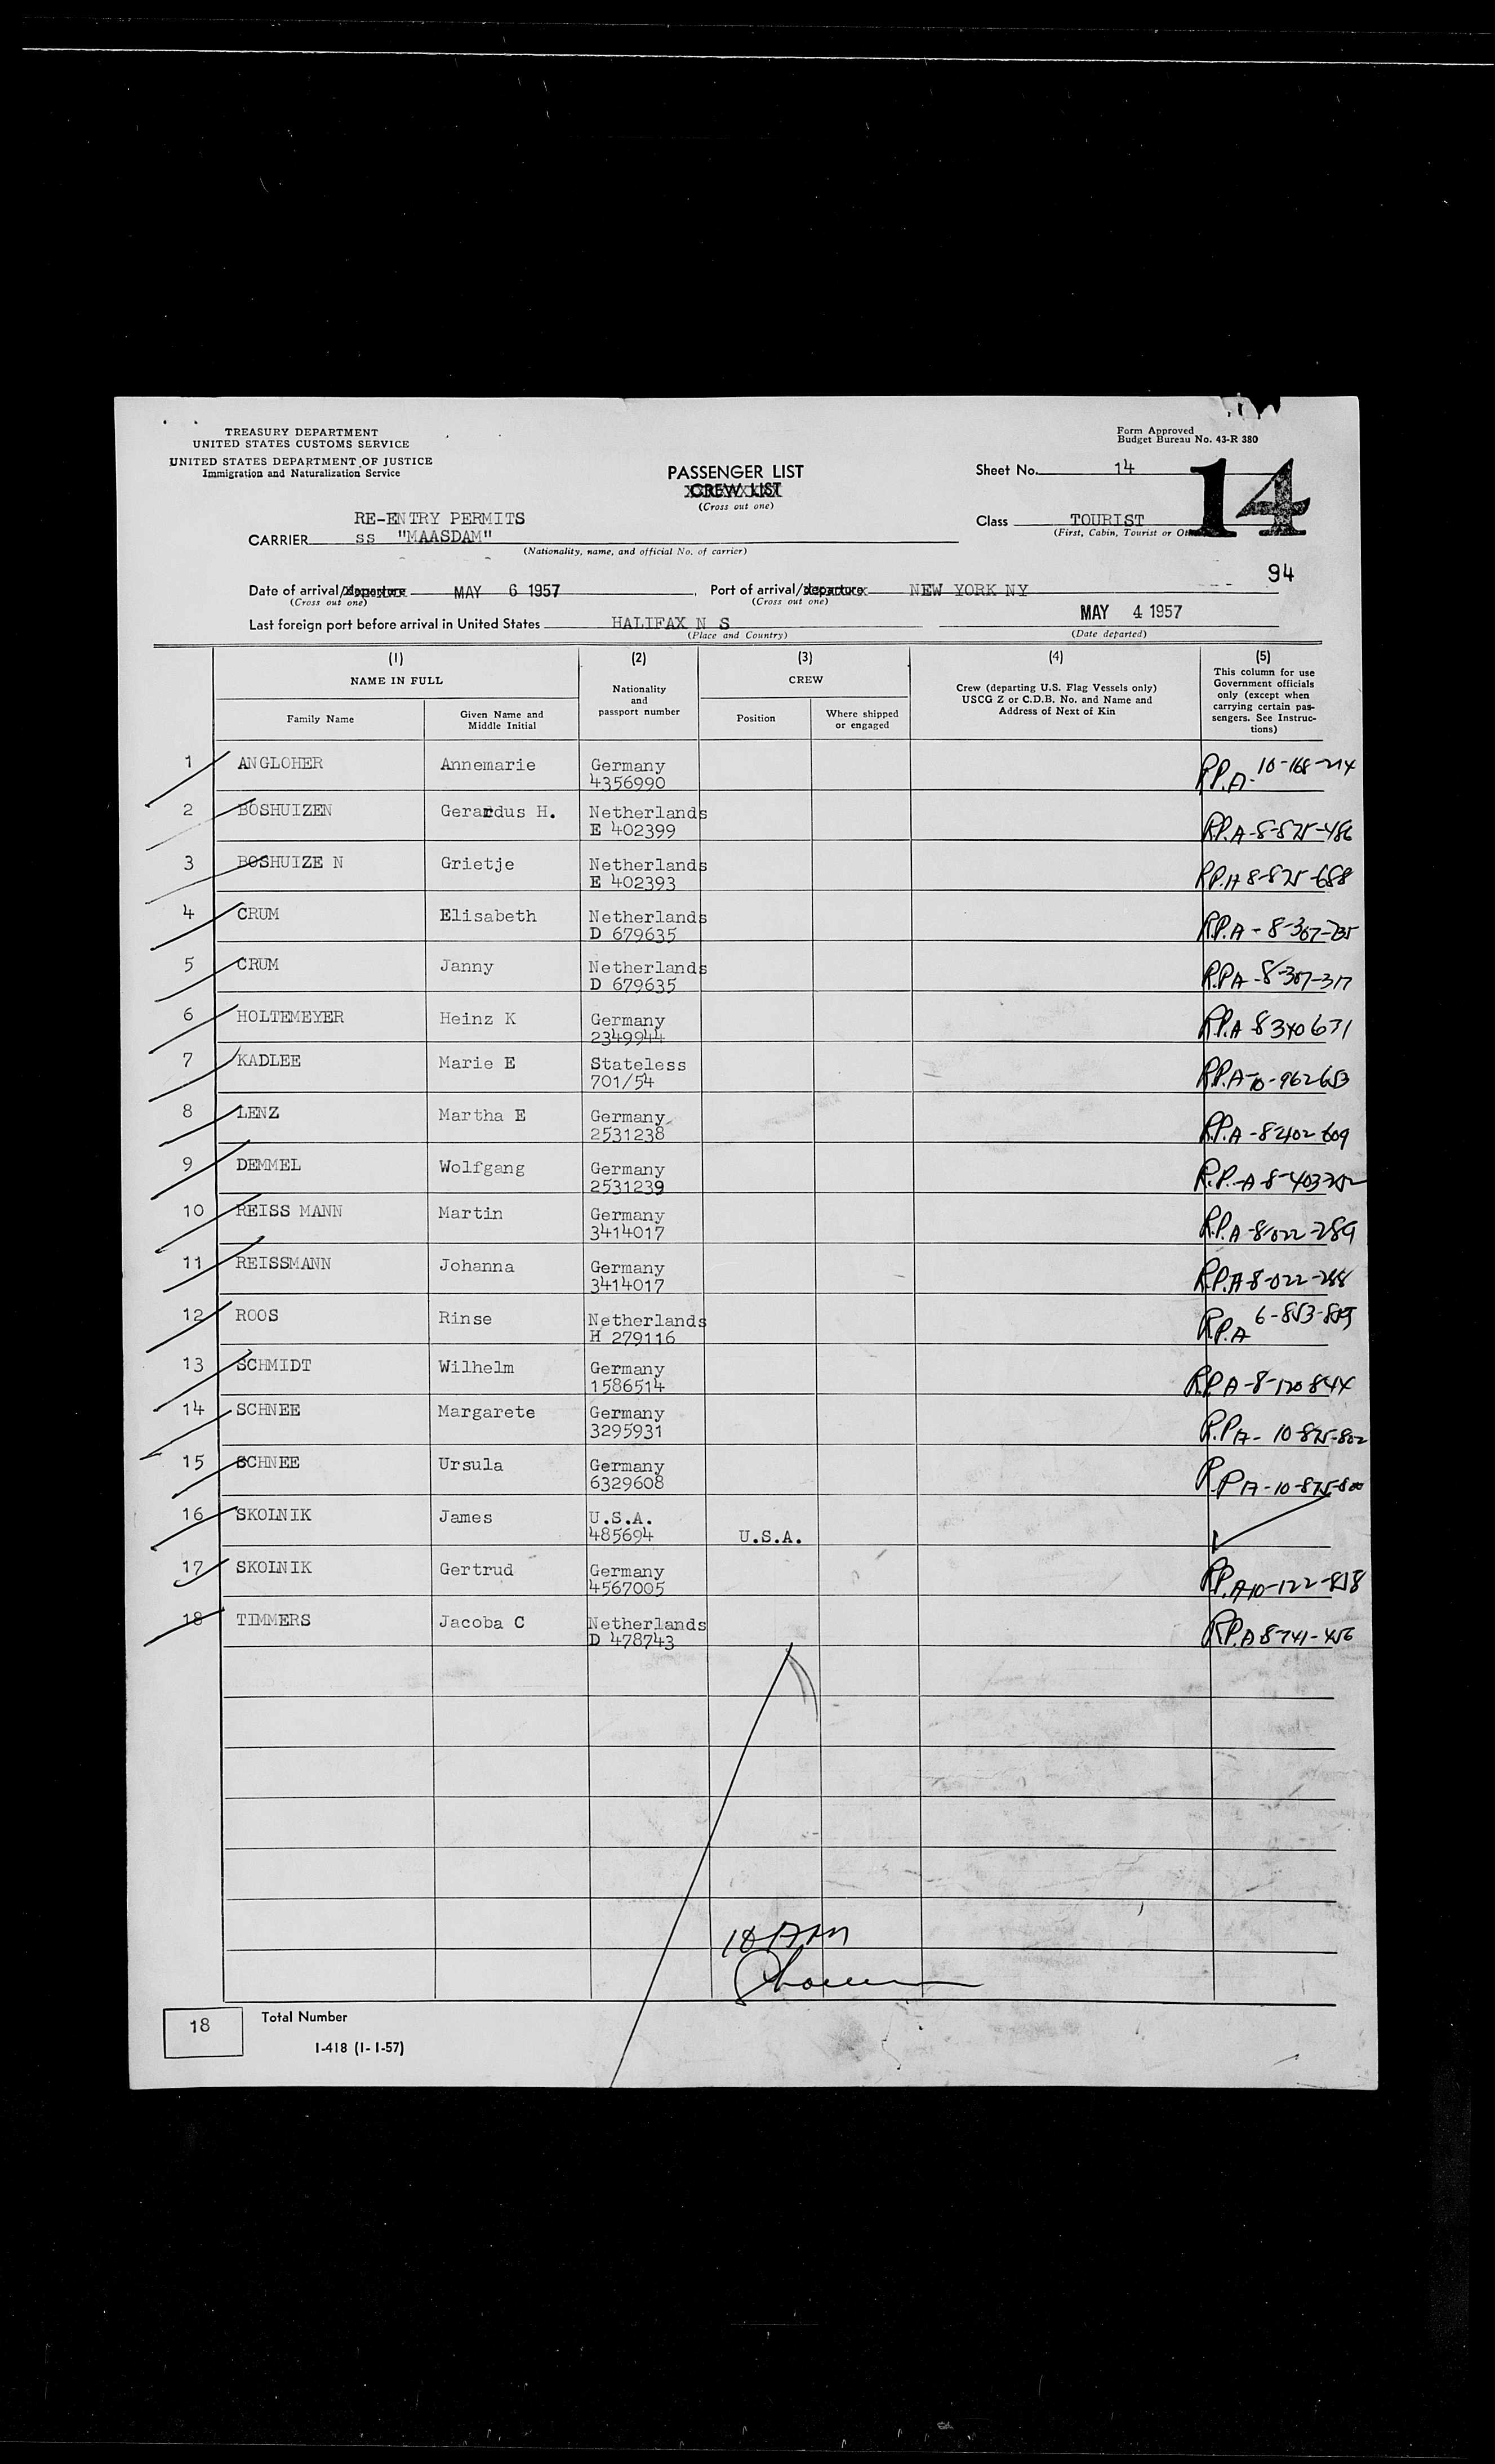 TREASURY DEPARTMENT
UNITED STATES CUSTOMS SERVICE
UNITED STATES DEPARTMENT OF JUSTICE
Immigration and Naturalization Service
Form Approved
Budget Bureau No. 43-R 380
PASSENGER LIST
CREW LIST
(Cross out one)
Sheet No. 14
14
RE-ENTRY PERMITS
CARRIER ss "MAASDAM"
(Nationality, name, and official No. of carrier)
Class TOURIST
(First, Cabin, Tourist or
94
Date of arrival/departure MAY 6 1957, Port of arrival/departure NEW YORK NY
(Cross out one) (Cross out one)
Last foreign port before arrival in United States HALIFAX N S MAY 4 1957
(Place and Country) (Date departed)
(1) (2) (3) (4) (5)
NAME IN FULL
Family Name
Given Name and
Middle Initial
Nationality
and
passport number
CREW
Position
Where shipped
or engaged
Crew (departing U.S. Flag Vessels only)
USCG Z or C.D.B. No. and Name and
Address of Next of Kin
This column for use
Government officials
only (except when
carrying certain pas-
sengers. See Instruc-
tions)
1 ANGLOHER Annemarie Germany
4356990 R.P.A-
2 BOSHUIZEN Gerardus H. Netherlands
E 402399 R.P.A-8-875-486
3 BOSHUIZE N Grietje Netherlands
E 402393 R.P.A 8-875-688
4 CRUM Elisabeth Netherlands
D 679635 R.P.A-
5 CRUM Janny Netherlands
D 679635 R.P.A-8-307-317
6 HOLTEMEYER Heinz K Germany
2349944 R.P.A-8340671
7 KADLEE Marie E Stateless
701/54 R.P.A-10-962653
8 LENZ Martha E Germany
2531238 R.P.A-8-402-609
9 DEMMEL Wolfgang Germany
2531239 R.P.-A-
10 REISS MANN Martin Germany
3414017 R.P.A-8-022-289
11 REISSMANN Johanna Germany
3414017 R.P.A-8-022-288
12 ROOS Rinse Netherlands
H 279116 R.P.A
13 SCHMIDT Wilhelm Germany
1586514 R.P.A-8-120844
14 SCHNEE Margarete Germany
3295931 R.P.A-10-875-802
15 SCHNEE Ursula Germany
6329608 R.P.A-10-875-800
16 SKOLNIK James U.S.A.
485694 U.S.A.
17 SKOLNIK Gertrud Germany
4567005 R.P.A10-122-818
18 TIMMERS Jacoba C Netherlands
D 478743 R.P.A 8-741-456
18 Total Number
I-418 (1-1-57)